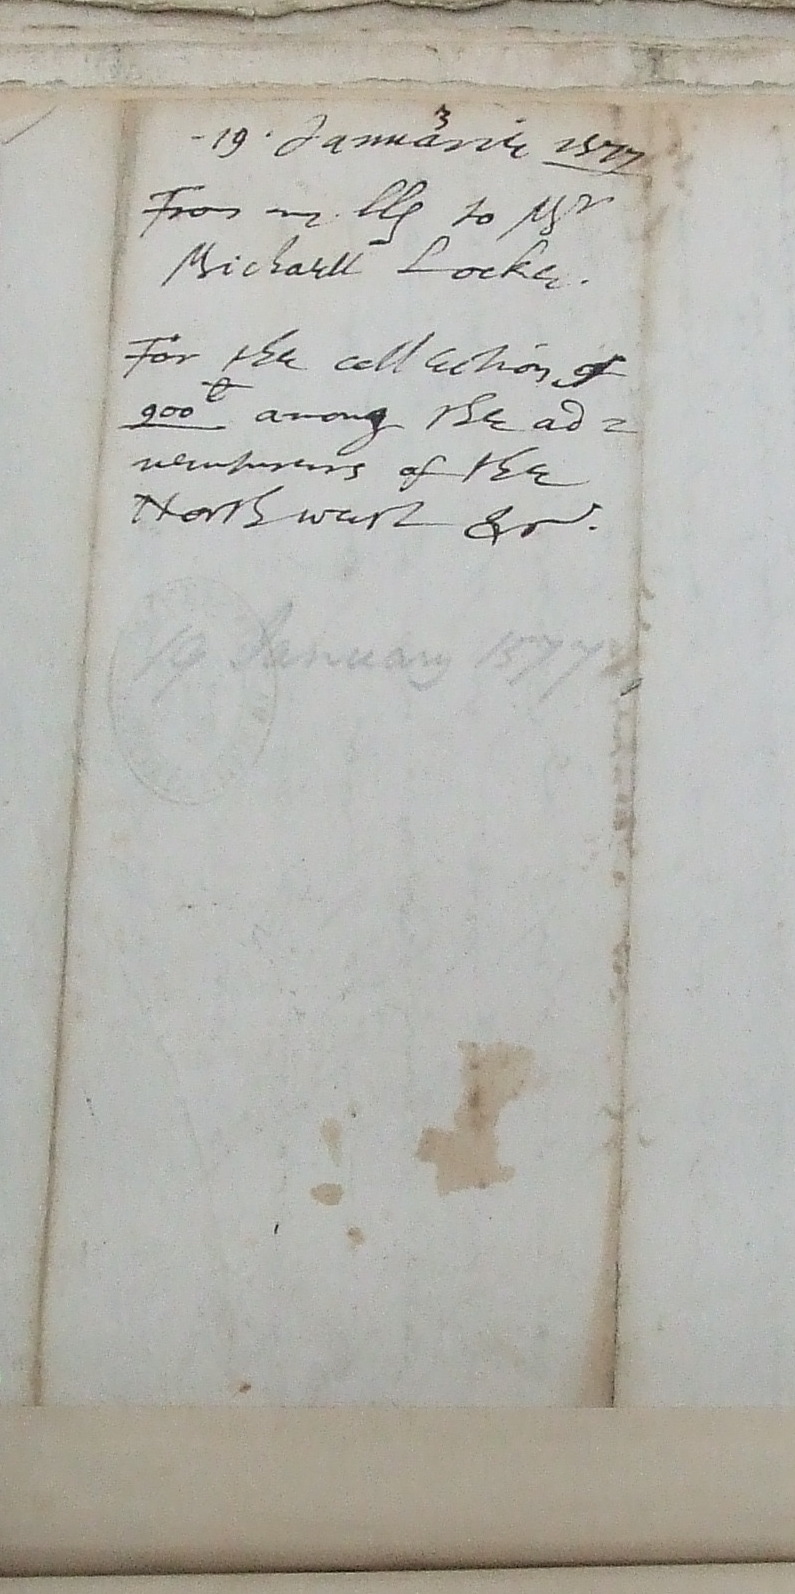 -19. Januarie 1577
3
From my. LLs to Mr
Michaell Locke.
For the collection of
900li among the ad=
venturers of the
Northwest &c.
19 January 1577